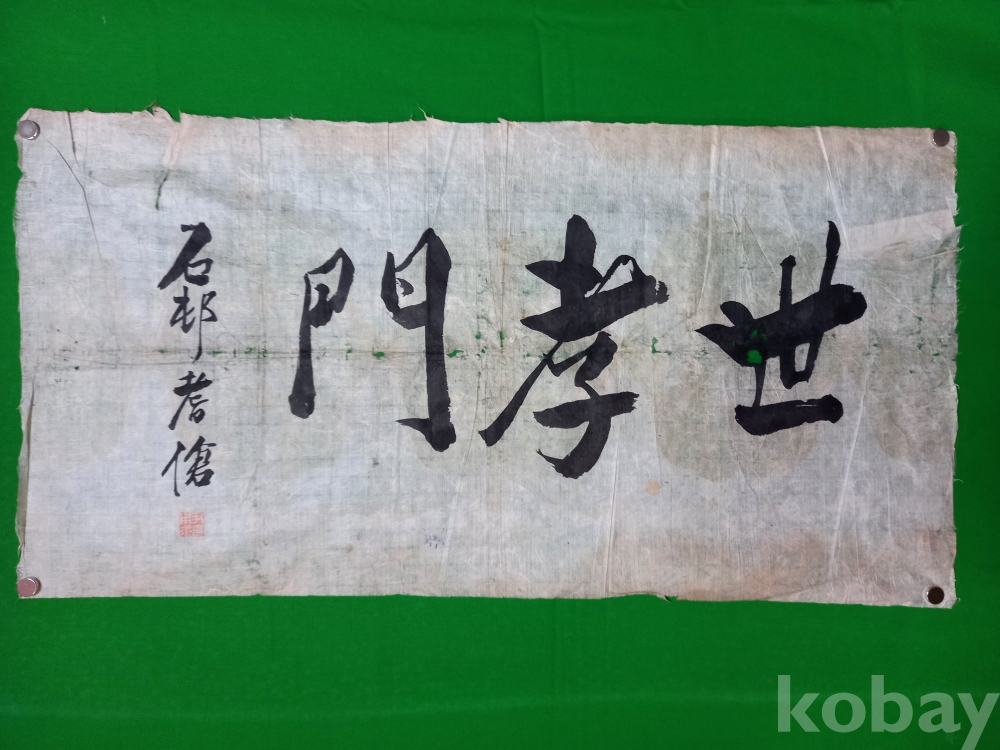 世孝門
石邨耆傖
kobay